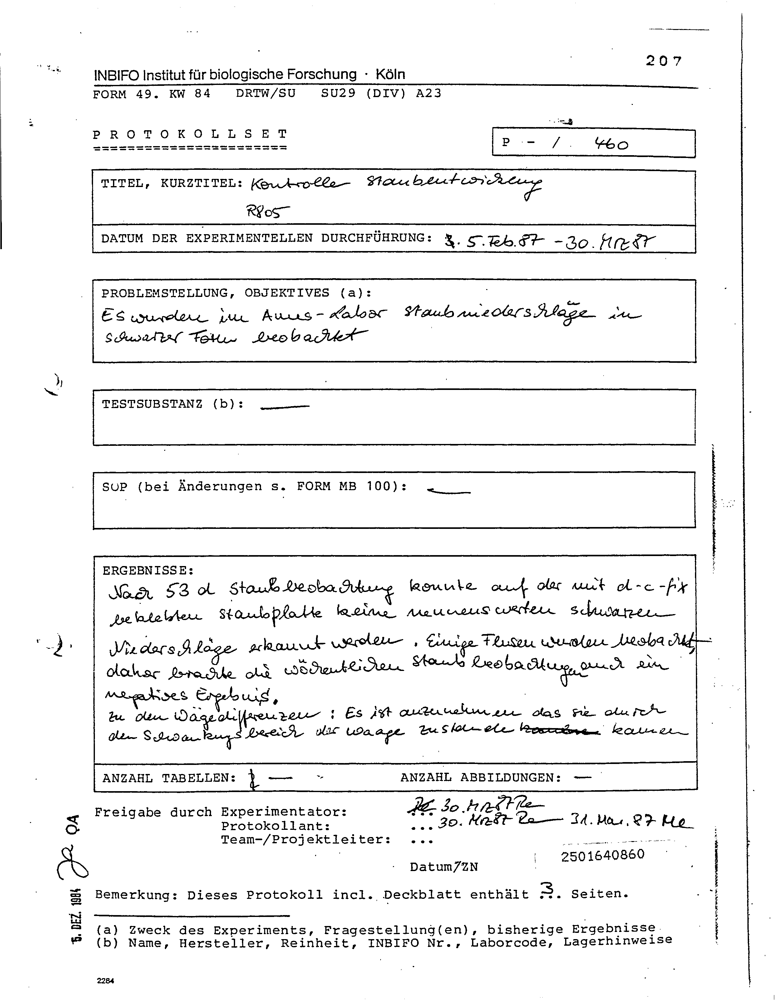 207
INBIFO Institut für biologische Forschung · Köln
FORM 49. KW 84 DRTW/SU SU29 (DIV) A23
PROTOKOLLSET
======================
P - / 460
TITEL, KURZTITEL: Kontrolle Staubentwicklung
R805
DATUM DER EXPERIMENTELLEN DURCHFÜHRUNG: 5. Feb. 87 - 30. MRZ 87
PROBLEMSTELLUNG, OBJEKTIVES (a):
Es wurden im Ames-Labor Staubniederschläge in
schwarzer Form beobachtet
TESTSUBSTANZ (b): ——
SOP (bei Änderungen s. FORM MB 100): ——
ERGEBNISSE:
Nach 53 d Staubbeobachtung konnte auf der mit d-c-fix
beklebten Staubplatte keine nennenswerten schwarzen
Niederschläge erkannt werden. Einige Flusen wurden beobachtet,
daher brachte die wöchentlichen Staubbeobachtungen auch ein
negatives Ergebnis.
zu den Wägedifferenzen: Es ist anzunehmen das sie durch
den Schwankungsbereich der Waage zustande kamen
ANZAHL TABELLEN: — ANZAHL ABBILDUNGEN: —
Freigabe durch Experimentator: 30. MRZ 87 Re
Protokollant: ... 30. MRZ 87 Re — 31. Mar. 87 Me
Team-/Projektleiter: ...
Datum/ZN
2501640860
Bemerkung: Dieses Protokoll incl. Deckblatt enthält 3 Seiten.
(a) Zweck des Experiments, Fragestellung(en), bisherige Ergebnisse
(b) Name, Hersteller, Reinheit, INBIFO Nr., Laborcode, Lagerhinweise
DEZ. 1984 QA
2284